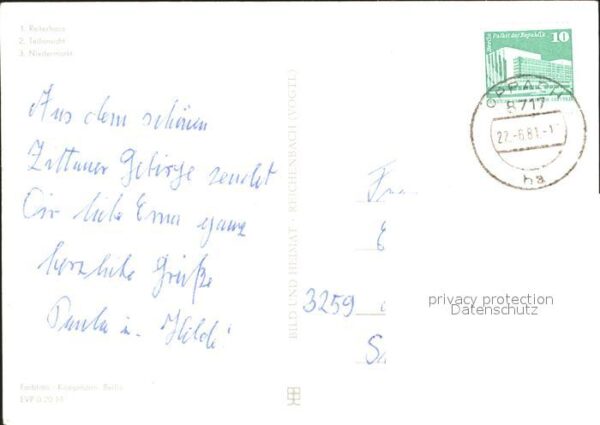 1. Reiterhaus
2. Teilansicht
3. Niedermarkt
Berlin Palast der Republik
10
DDR
OPPACH
8717
22.-6.81.-1
ha
Aus dem schönen
Zittauer Gebirge sendet
Dir liebe Erna ganz
herzliche Grüße
Paula u. Hilde
BILD UND HEIMAT · REICHENBACH (VOGTL)
Fra
E
3259
Sa
privacy protection
Datenschutz
Farbfoto · Kampmann, Berlin
EVP 0,20 M